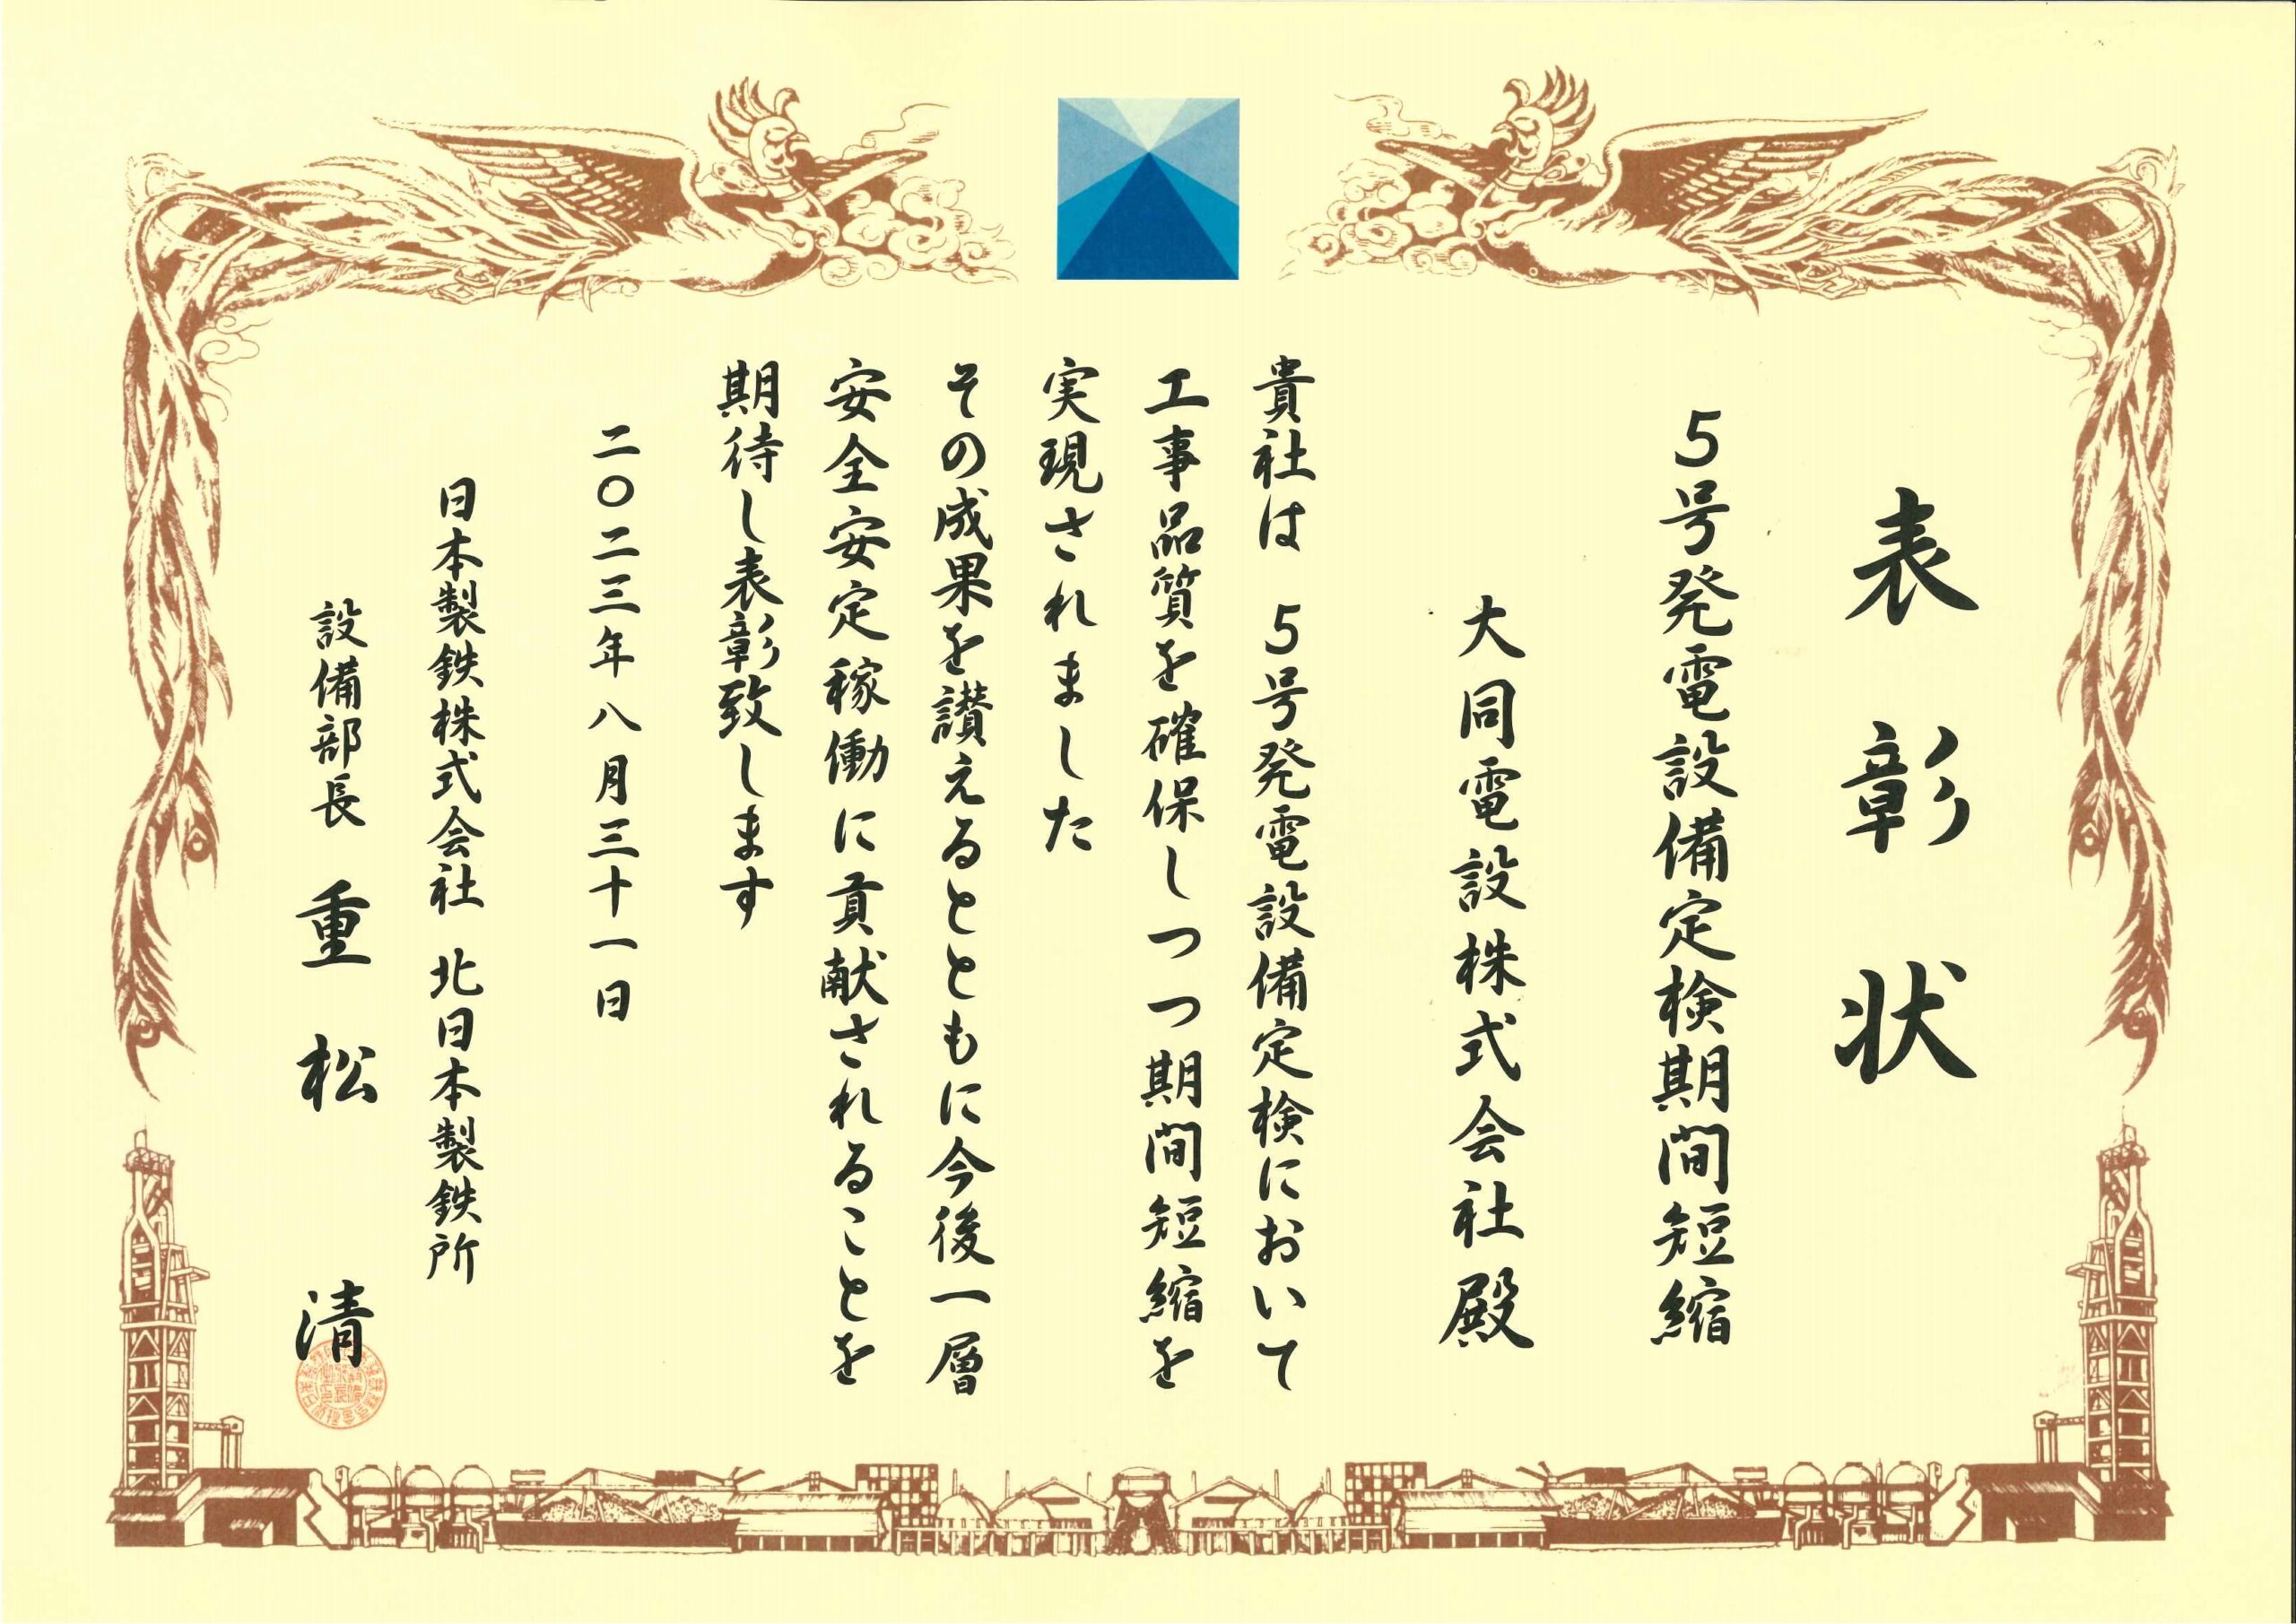 表彰状
5号発電設備定検期間短縮
大同電設株式会社殿
貴社は 5号発電設備定検において
工事品質を確保しつつ期間短縮を
実現されました
その成果を讃えるとともに今後一層
安全安定稼働に貢献されることを
期待し表彰致します
二〇二三年八月三十一日
日本製鉄株式会社 北日本製鉄所
設備部長 重松 清